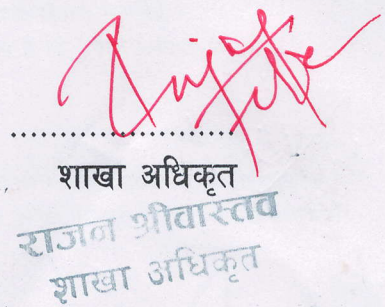 शाखा अधिकृत
राजन श्रीवास्तव
शाखा अधिकृत